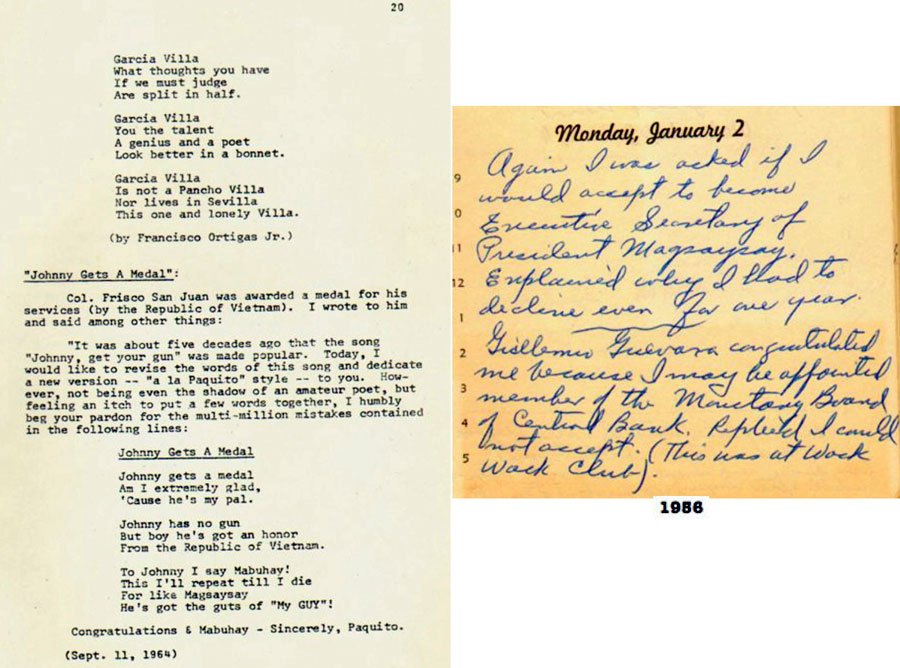 20
Garcia Villa
What thoughts you have
If we must judge
Are split in half.
Garcia Villa
You the talent
A genius and a poet
Look better in a bonnet.
Garcia Villa
Is not a Pancho Villa
Nor lives in Sevilla
This one and lonely Villa.
(by Francisco Ortigas Jr.)
"Johnny Gets A Medal":
Col. Frisco San Juan was awarded a medal for his
services (by the Republic of Vietnam). I wrote to him
and said among other things:
"It was about five decades ago that the song
"Johnny, get your gun" was made popular. Today, I
would like to revise the words of this song and dedicate
a new version -- "a la Paquito" style -- to you. How-
ever, not being even the shadow of an amateur poet, but
feeling an itch to put a few words together, I humbly
beg your pardon for the multi-million mistakes contained
in the following lines:
Johnny Gets A Medal
Johnny gets a medal
Am I extremely glad,
'Cause he's my pal.
Johnny has no gun
But boy he's got an honor
From the Republic of Vietnam.
To Johnny I say Mabuhay!
This I'll repeat till I die
For like Magsaysay
He's got the guts of "My GUY"!
Congratulations & Mabuhay - Sincerely, Paquito.
(Sept. 11, 1964)
Monday, January 2
9
0
11
12
1
2
3
4
5
Again I was asked if I
would accept to become
Executive Secretary of
President Magsaysay.
Explained why I had to
decline even for one year.
Guevara congratulated
me because I may be appointed
member of the Monetary Board
of Central Bank. Replied I could
not accept. (This was at Wack
Wack Club).
1956